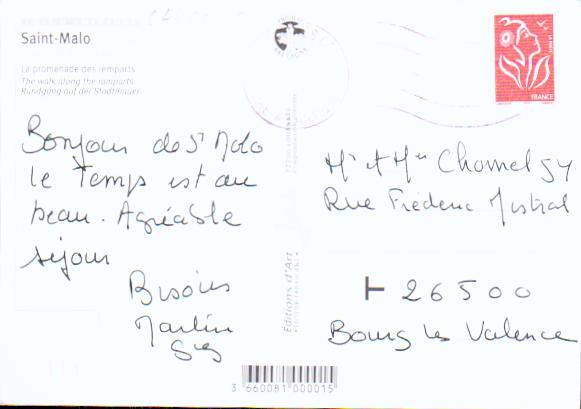 Saint-Malo
La promenade des remparts
The walk along the ramparts
Rundgang auf der Stadtmauer
Bonjour de St Malo
le Temps est au
beau. Agréable
séjour
Bisous
Martin
Mr et Mme Chomel 54
Rue Fréderic Mistral
26500
Bourg les Valence
Editions d'Art
3 660081 000015
LA POSTE
FRANCE